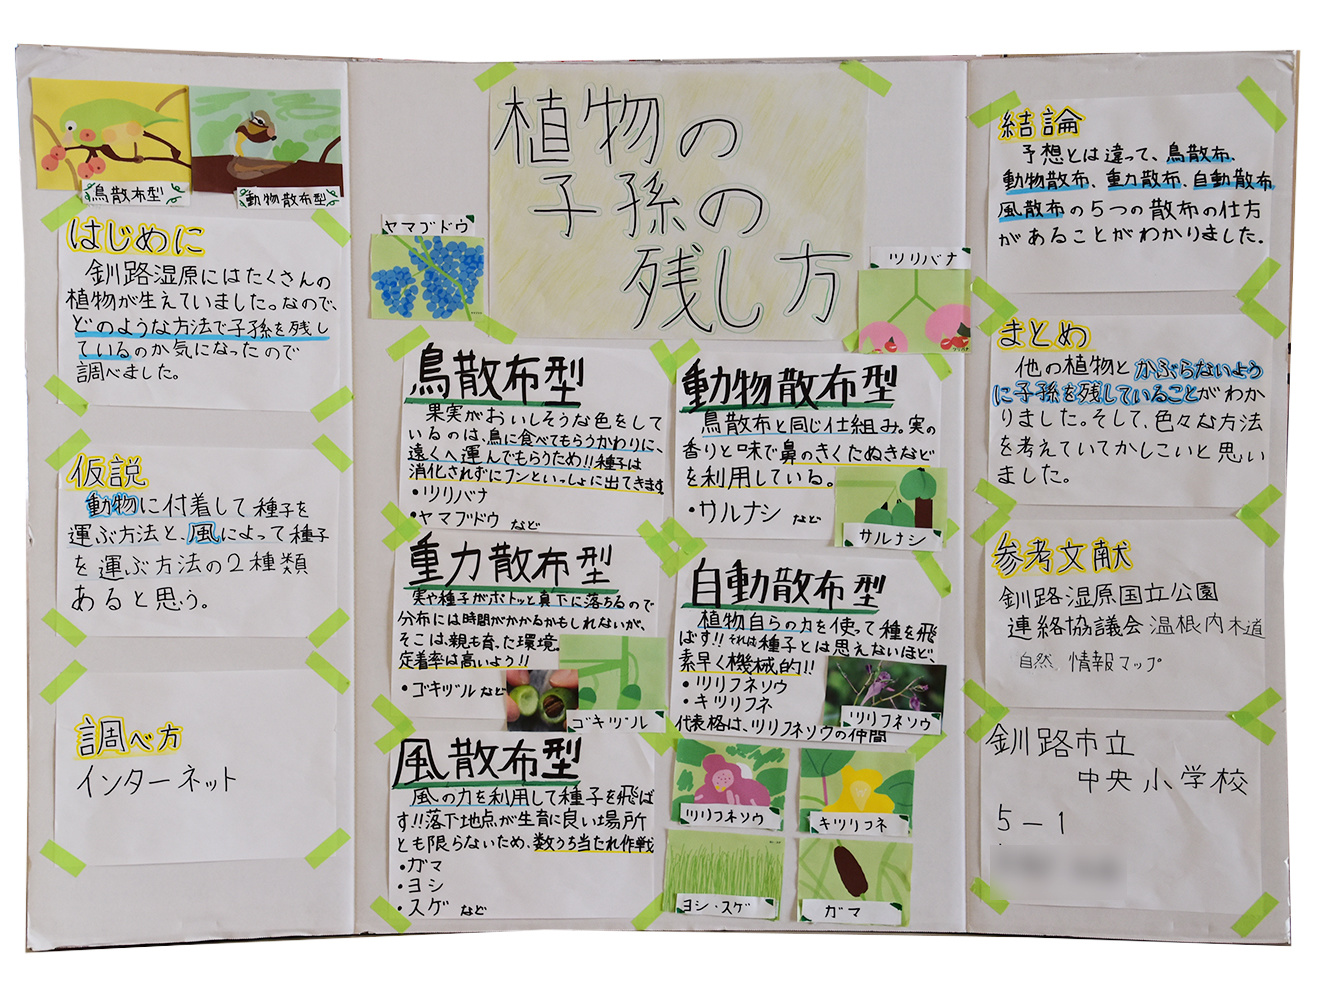 植物の
子孫の
残し方
鳥散布型
動物散布型
はじめに
釧路湿原にはたくさんの
植物が生えていました。なので、
どのような方法で子孫を残し
ているのか気になったので
調べました。
仮説
動物に付着して種子を
運ぶ方法と、風によって種子
を運ぶ方法の2種類
あると思う。
調べ方
インターネット
ヤマブドウ
ツリバナ
鳥散布型
果実がおいしそうな色をして
いるのは、鳥に食べてもらうかわりに、
遠くへ運んでもらうため!!種子は
消化されずにフンといっしょに出てきます。
・ツリバナ
・ヤマブドウ など
動物散布型
鳥散布と同じ仕組み。実の
香りと味で鼻のきくたぬきなど
を利用している。
・サルナシ など
サルナシ
重力散布型
実や種子がポトッと真下に落ちるので
分布には時間がかかるかもしれないが、
そこは、親も育った環境。
定着率は高いよう!!
・ゴキヅル など
ゴキヅル
自動散布型
植物自らの力を使って種を飛
ばす!!それは種子とは思えないほど、
素早く機械的!!
・ツリフネソウ
・キツリフネ
代表格は、ツリフネソウの仲間
ツリフネソウ
風散布型
風の力を利用して種子を飛ば
す!!落下地点が生育に良い場所
とも限らないため、数うち当たれ作戦
・ガマ
・ヨシ
・スゲ など
ツリフネソウ
キツリフネ
ヨシ・スゲ
ガマ
結論
予想とは違って、鳥散布、
動物散布、重力散布、自動散布
風散布の5つの散布の仕方
があることがわかりました。
まとめ
他の植物とかぶらないよう
に子孫を残していることがわか
りました。そして、色々な方法
を考えていてかしこいと思い
ました。
参考文献
釧路湿原国立公園
連絡協議会 温根内木道
自然 情報マップ
釧路市立
中央小学校
5-1